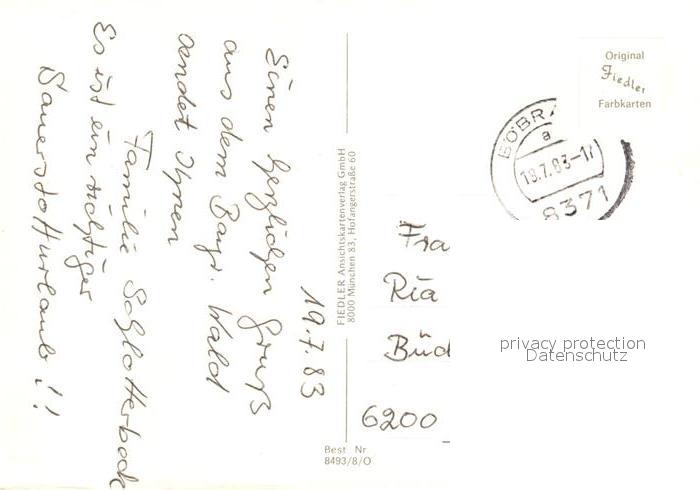 19.7.83
Einen herzlichen Gruß
aus dem Bayr. Wald
sendet Ihnen
Familie Schlotterbeck
Es ist ein richtiger
Sauerstoffurlaub!!
FIEDLER Ansichtskartenverlag GmbH
8000 München 83, Hofangerstraße 60
Best Nr
8493/8/O
Original
Fiedler
Farbkarten
BÖBR
a
19.7.83-17
8371
Fra
Ria
Büd
6200
privacy protection
Datenschutz